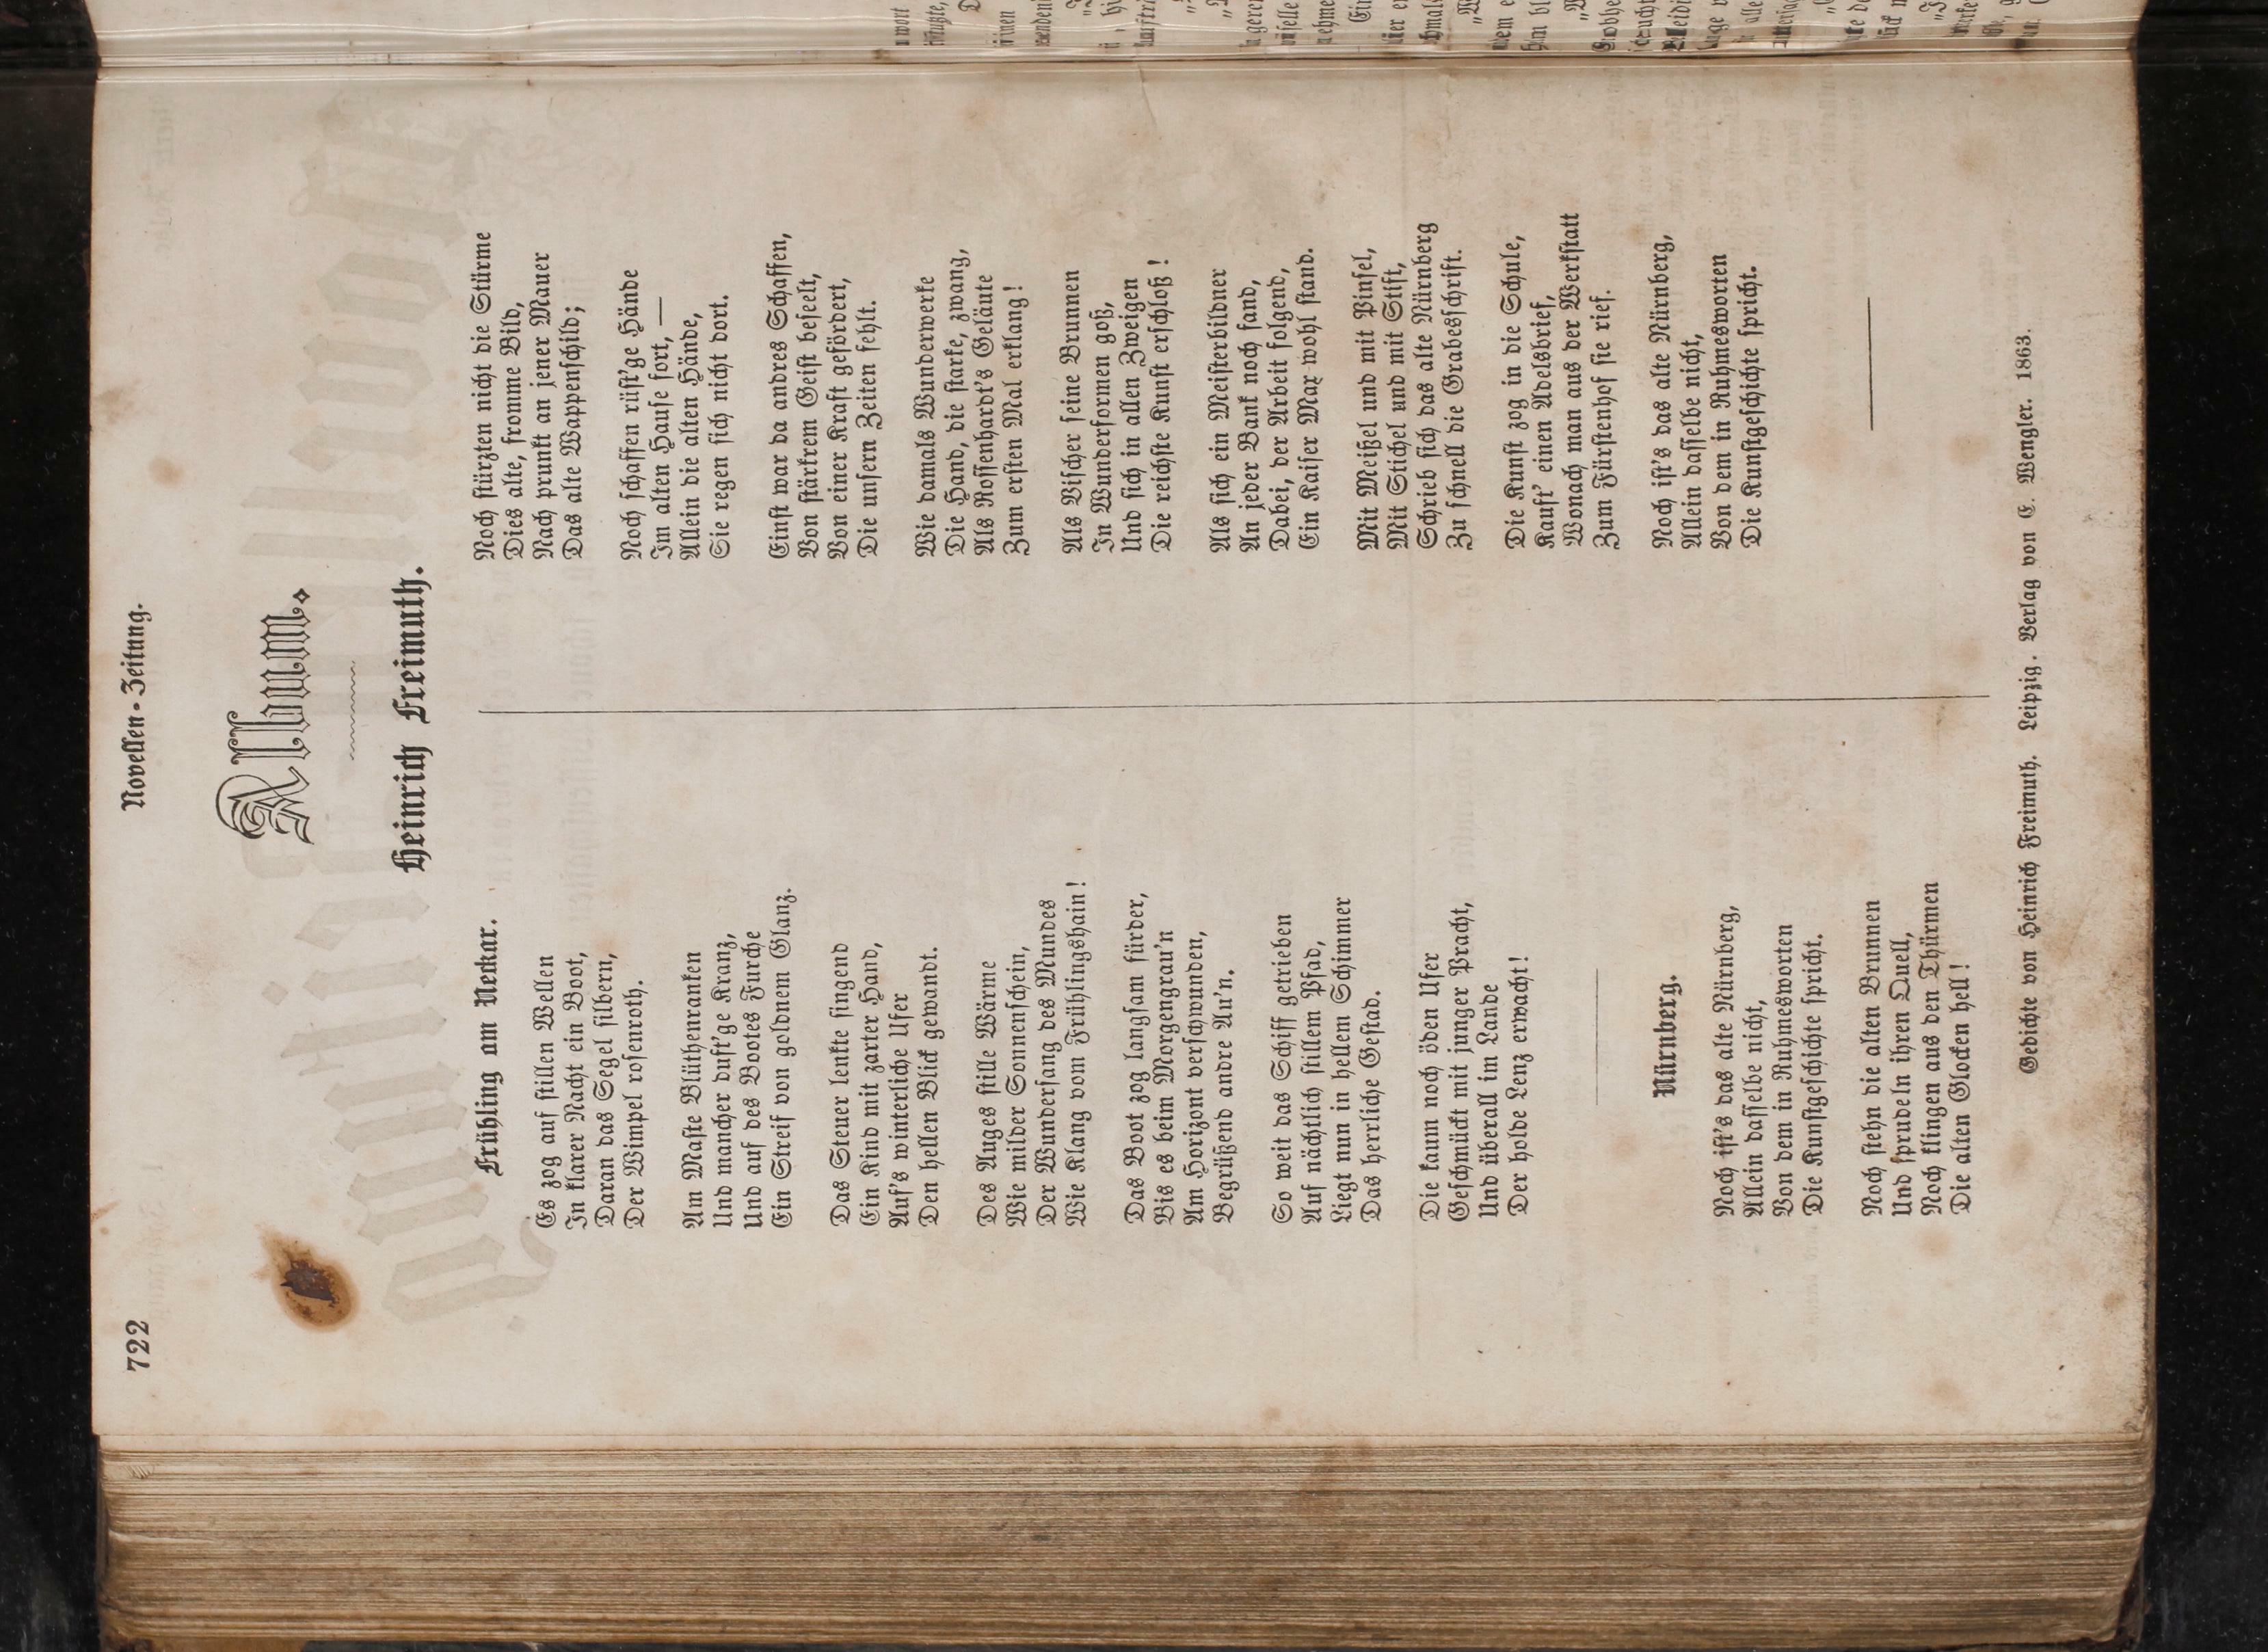 722
Novellen-Zeitung.
Album.
Heinrich Freimuth.
Frühling am Neckar.
Es zog auf stillen Wellen
In klarer Nacht ein Boot,
Daran das Segel silbern,
Der Wimpel rosenroth.
Am Maste Blüthenranken
Und mancher duft'ge Kranz,
Und auf des Bootes Furche
Ein Streif von goldnem Glanz.
Das Steuer lenkte singend
Ein Kind mit zarter Hand,
Auf's winterliche Ufer
Den hellen Blick gewandt.
Des Auges stille Wärme
Wie milder Sonnenschein,
Der Wundersang des Mundes
Wie Klang vom Frühlingshain!
Das Boot zog langsam fürder,
Bis es beim Morgengrau'n
Am Horizont verschwunden,
Begrüßend andre Au'n.
So weit das Schiff getrieben
Auf nächtlich stillem Pfad,
Liegt nun in hellem Schimmer
Das herrliche Gestad.
Die kaum noch öden Ufer
Geschmückt mit junger Pracht,
Und überall im Lande
Der holde Lenz erwacht!
Nürnberg.
Noch ist's das alte Nürnberg,
Allein dasselbe nicht,
Von dem in Ruhmesworten
Die Kunstgeschichte spricht.
Noch stehn die alten Brunnen
Und sprudeln ihren Quell,
Noch klingen aus den Thürmen
Die alten Glocken hell!
Noch stürzten nicht die Stürme
Dies alte, fromme Bild,
Nach prunkt an jener Mauer
Das alte Wappenschild;
Noch schaffen rüst'ge Hände
Im alten Hause fort, —
Allein die alten Hände,
Sie regen sich nicht dort.
Einst war da andres Schaffen,
Von stärkrem Geist beseelt,
Von einer Kraft gefördert,
Die unsern Zeiten fehlt.
Wie damals Wunderwerke
Die Hand, die starke, zwang,
Als Rossenhardt's Geläute
Zum ersten Mal erklang!
Als Vischer seine Brunnen
In Wunderformen goß,
Und sich in allen Zweigen
Die reichste Kunst erschloß!
Als sich ein Meisterbildner
An jeder Bank noch fand,
Dabei, der Arbeit folgend,
Ein Kaiser Max wohl stand.
Mit Meißel und mit Pinsel,
Mit Stichel und mit Stift,
Schrieb sich das alte Nürnberg
Zu schnell die Grabesschrift.
Die Kunst zog in die Schule,
Kauft' einen Adelsbrief,
Wonach man aus der Werkstatt
Zum Fürstenhof sie rief.
Noch ist's das alte Nürnberg,
Allein dasselbe nicht,
Von dem in Ruhmesworten
Die Kunstgeschichte spricht.
Gedichte von Heinrich Freimuth. Leipzig. Verlag von E. Wengler. 1863.